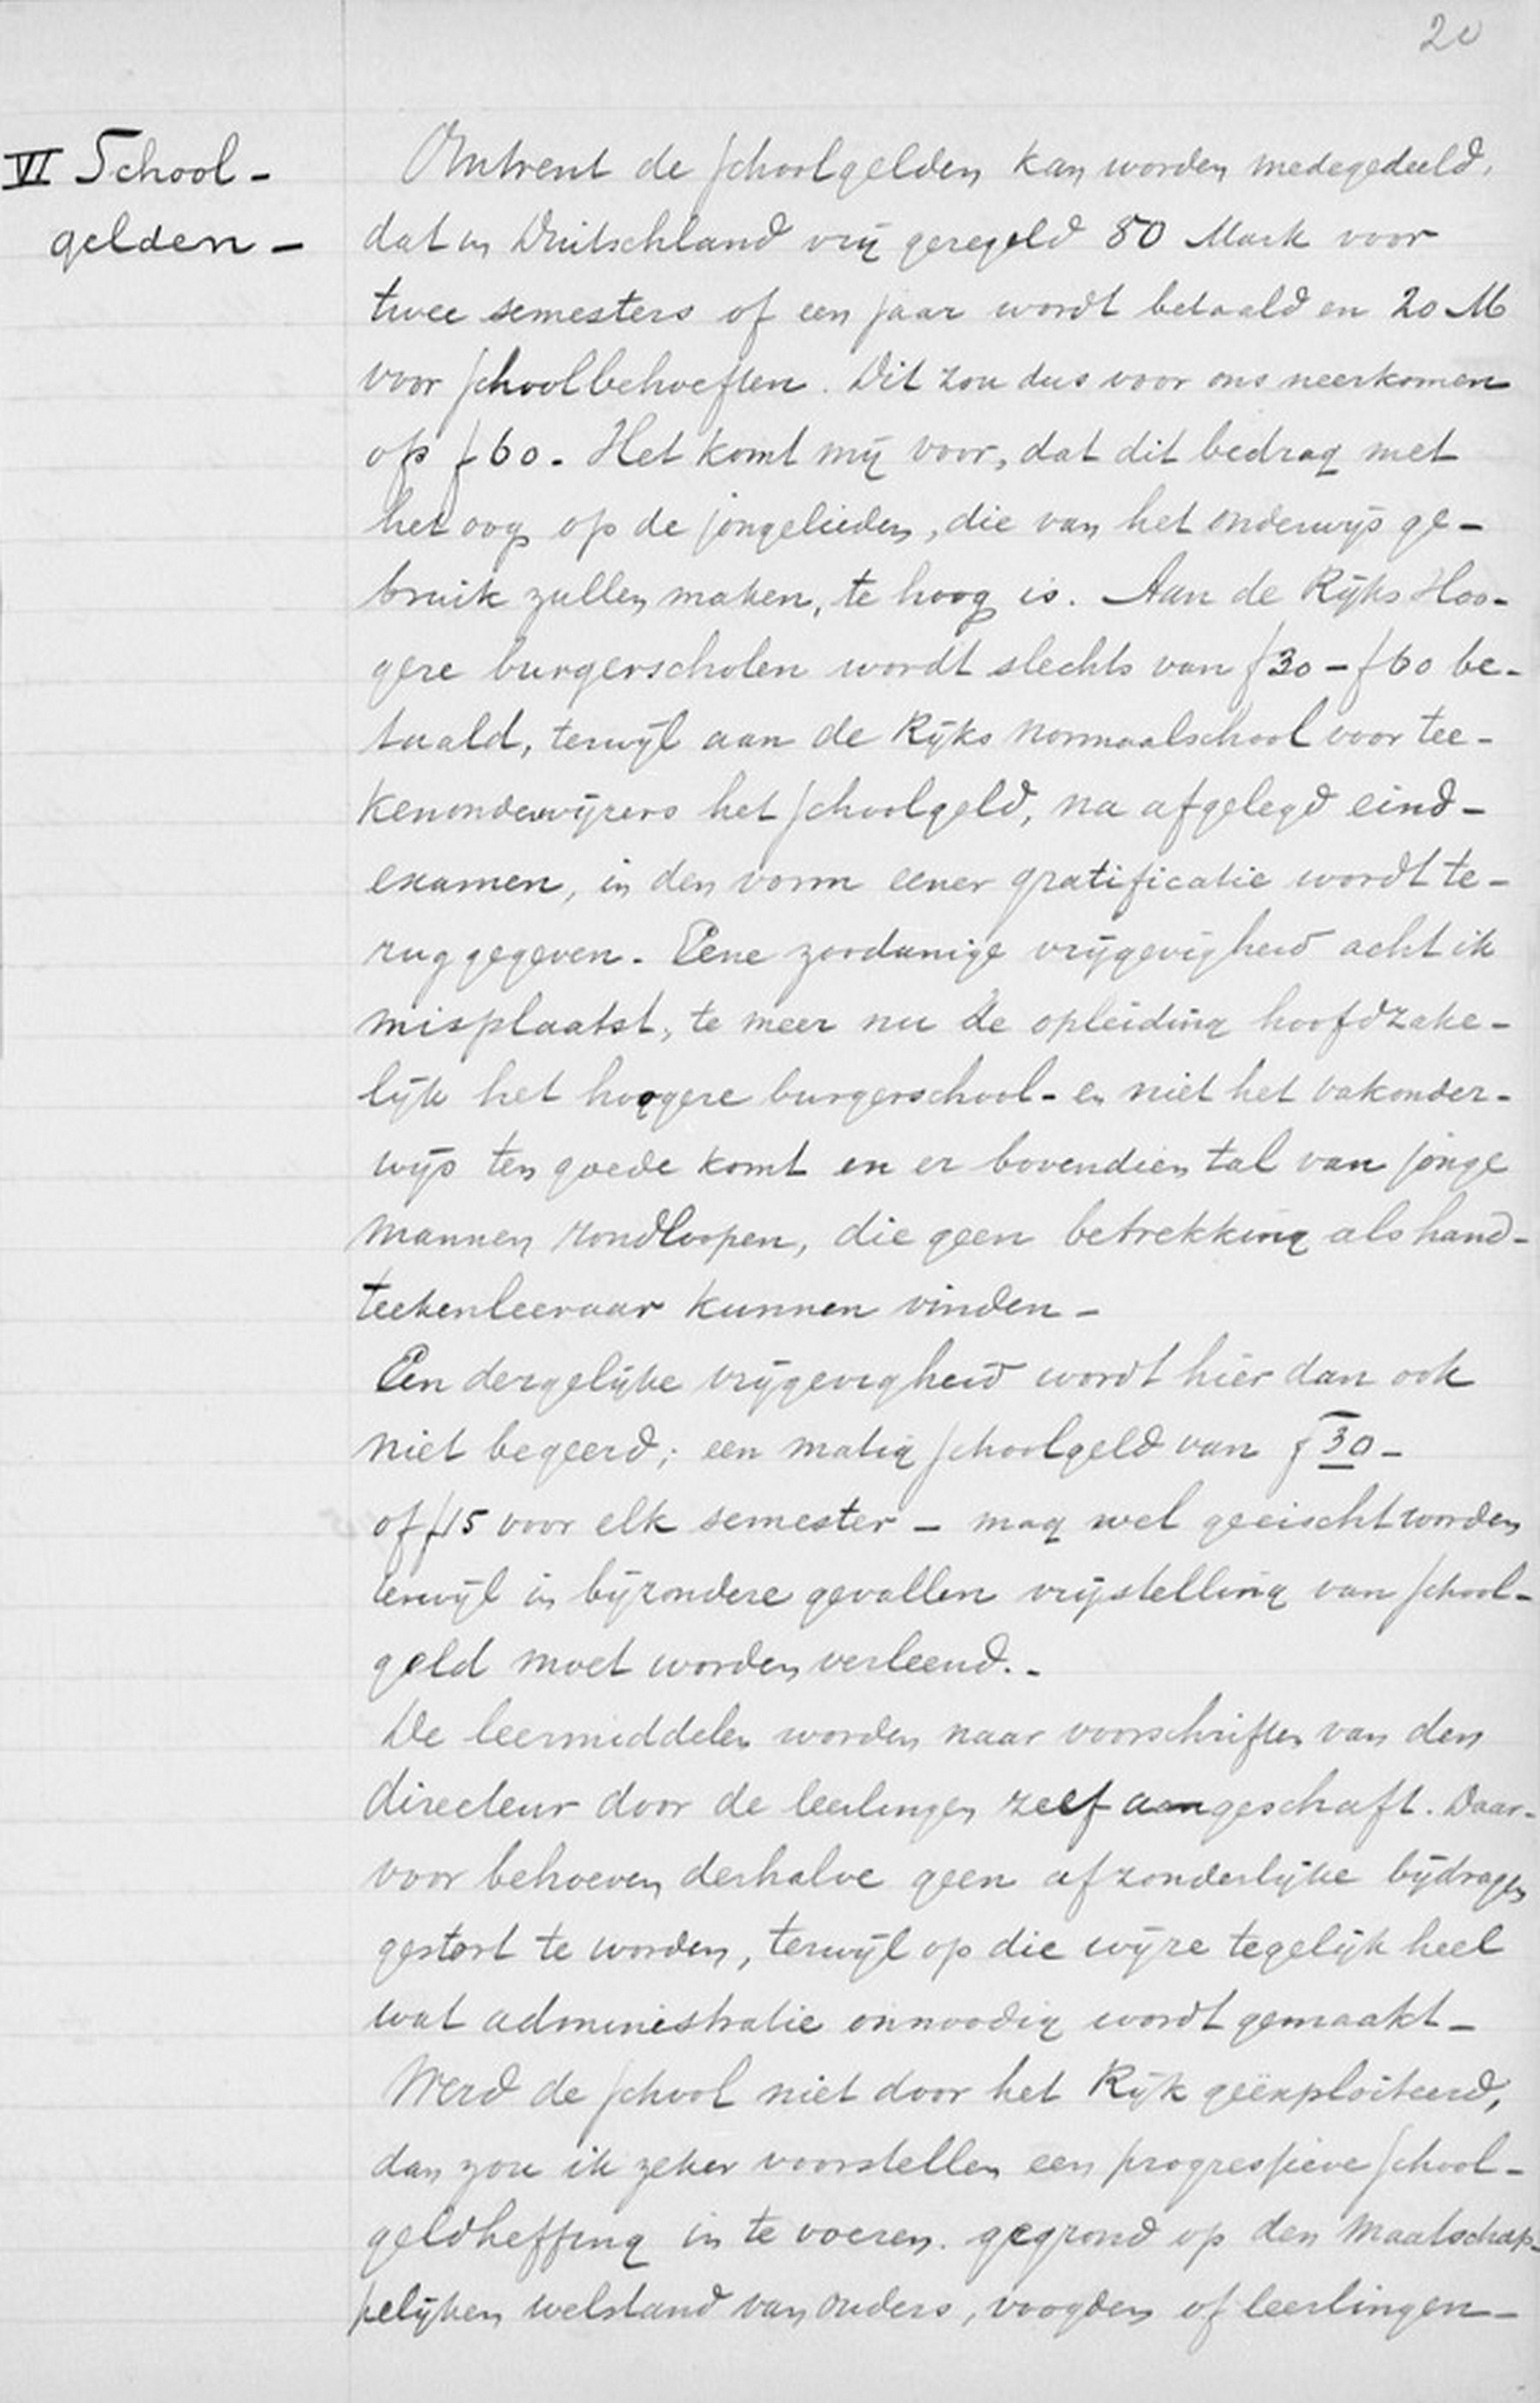 20
VI School-
gelden-
Omtrent de schoolgelden kan worden medegedeeld,
dat in Duitschland vrij geregeld 80 Mark voor
twee semesters of een jaar wordt betaald en 20 M
voor schoolbehoeften. Dit zou dus voor ons neerkomen
op f 60. Het komt mij voor, dat dit bedrag met
het oog op de jongelieden, die van het onderwijs ge-
bruik zullen maken, te hoog is. Aan de Rijks Hoo-
gere burgerscholen wordt slechts van f 30 - f 60 be-
taald, terwijl aan de Rijks Normaalschool voor tee-
kenonderwijzers het schoolgeld, na afgelegd eind-
examen, in den vorm eener gratificatie wordt te-
ruggegeven. Eene zoodanige vrijgevigheid acht ik
misplaatst, te meer nu de opleiding hoofdzake-
lijk het hoogere burgerschool- en niet het vakonder-
wijs ten goede komt en er bovendien tal van jonge
mannen rondloopen, die geen betrekking als hand-
teekenleeraar kunnen vinden-
Een dergelijke vrijgevigheid wordt hier dan ook
niet begeerd; een matig schoolgeld van f 30-
of f 15 voor elk semester - mag wel geeischt worden
terwijl in bijzondere gevallen vrijstelling van school-
geld moet worden verleend.-
De leermiddelen worden naar voorschriften van den
directeur door de leerlingen zelf aangeschaft. Daar-
voor behoeven derhalve geen afzonderlijke bijdragen
gestort te worden, terwijl op die wijze tegelijk heel
wat administratie onnoodig wordt gemaakt-
Werd de school niet door het Rijk geëxploiteerd,
dan zou ik zeker voorstellen een progressieve school-
geldheffing in te voeren. gegrond op den maatschap-
pelijken welstand van ouders, voogden of leerlingen-